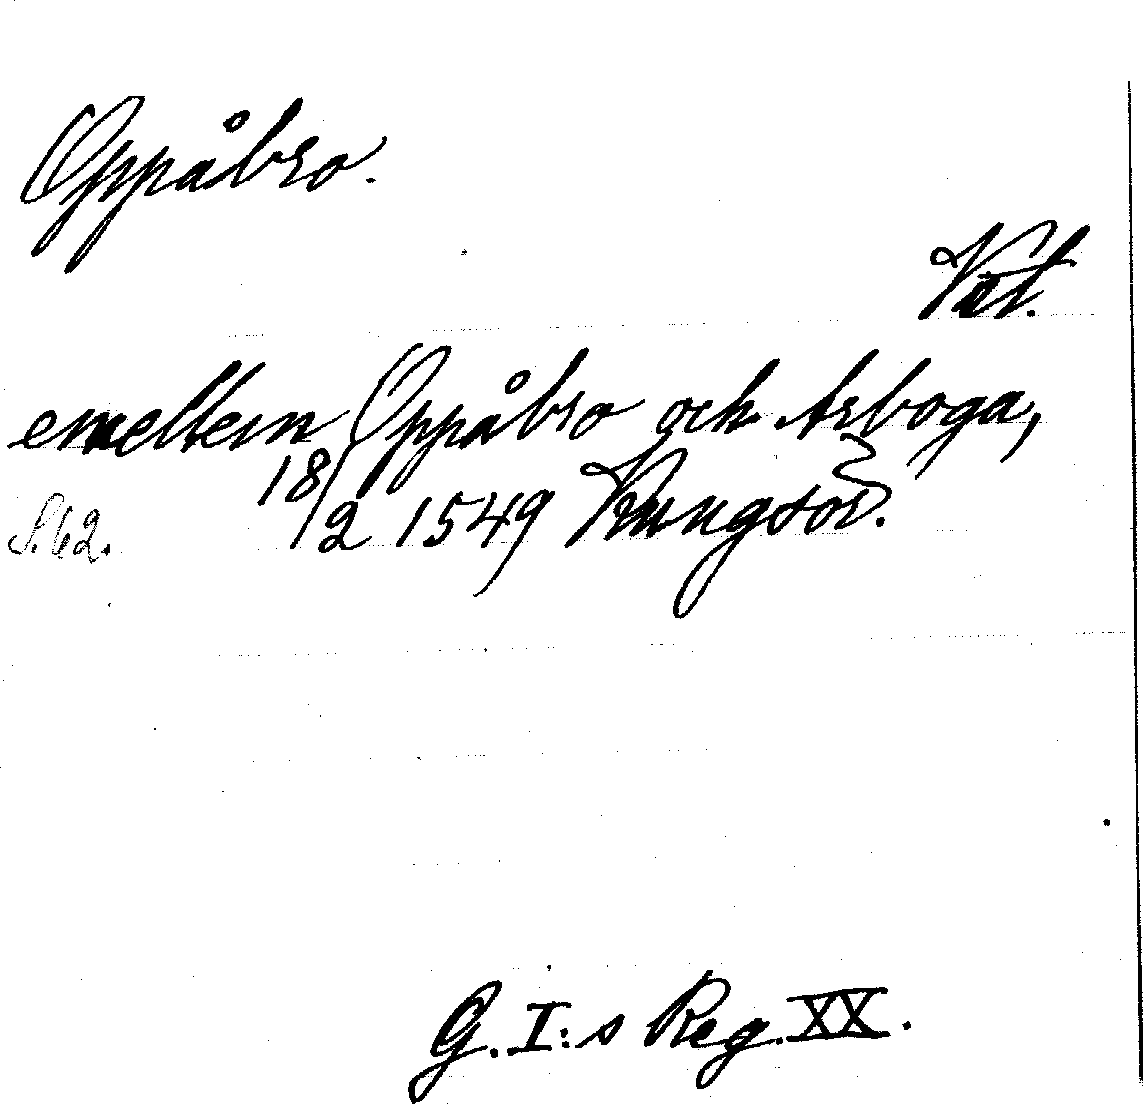 Oppåbro.
Väst.
emellem Oppåbro och Arboga,
18/2 1549 Kungsör.
S. 62.
G. I:s Reg. XX.